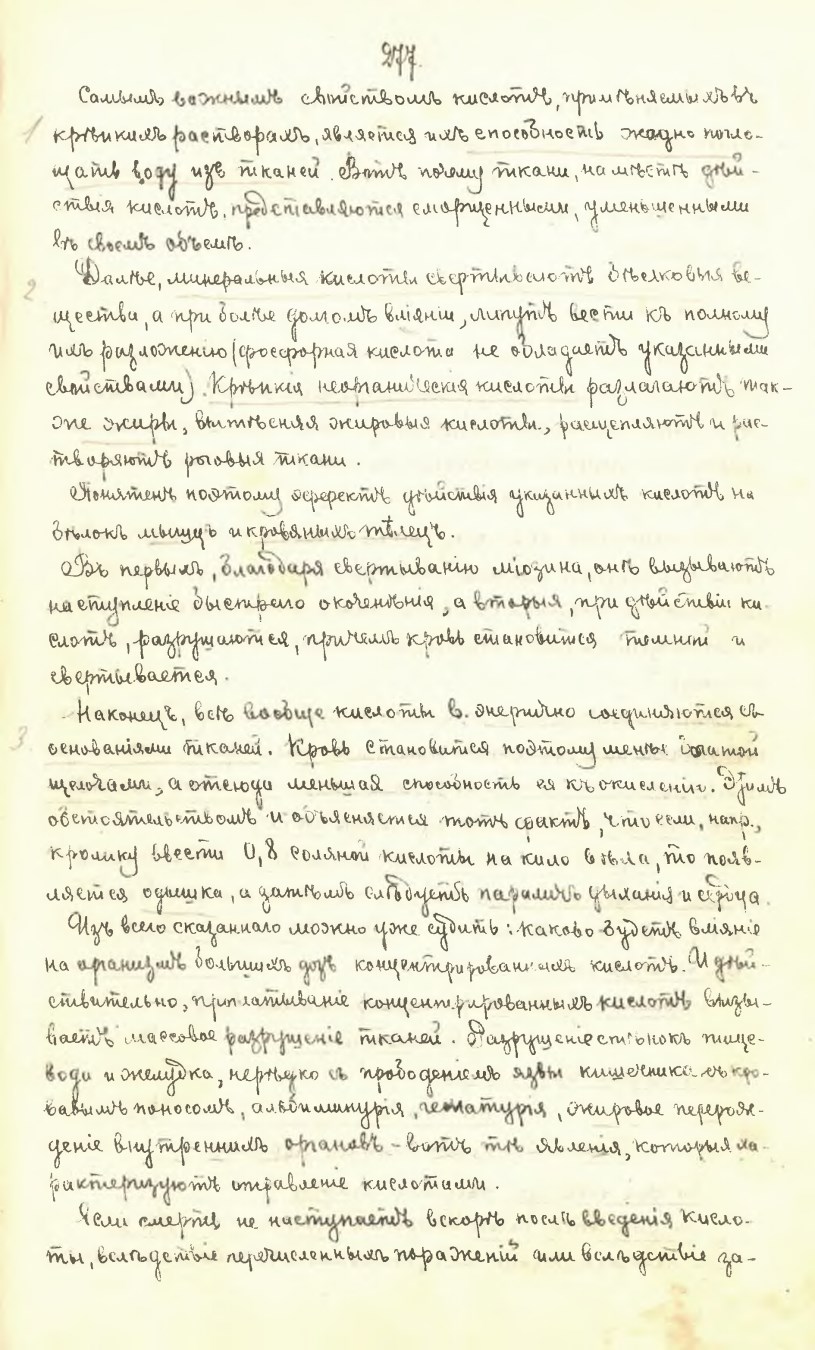 277.
Самымъ важнымъ свойствомъ кислотъ, примѣняемыхъ въ
1 крѣпкихъ растворахъ, является ихъ способность жадно погло-
щать воду изъ тканей. Вотъ почему ткани, на мѣстѣ дѣй-
ствія кислотъ, представляются сморщенными, уменьшенными
въ своемъ объемѣ.
2 Далѣе, минеральныя кислоты свертываютъ бѣлковыя ве-
щества, а при болѣе долгомъ вліяніи, могутъ вести къ полному
ихъ разложенію (фосфорная кислота не обладаетъ указанными
свойствами). Крѣпкія неорганическія кислоты разлагаютъ так-
же жиры, вытѣсняя жировыя кислоты, расщепляютъ и рас-
творяютъ роговыя ткани.
Понятенъ поэтому эффектъ дѣйствія указанныхъ кислотъ на
бѣлокъ мышцъ и кровяныхъ тѣлецъ.
Въ первыхъ, благодаря свертыванію міозина, онѣ вызываютъ
наступленіе быстраго окоченѣнія, а вторыя, при дѣйствіи ки-
слотъ, разрушаются, причемъ кровь становится темнѣй и
свертывается.
3 Наконецъ, всѣ вообще кислоты в. энергично соединяются съ
основаніями тканей. Кровь становится поэтому менѣе богатой
щелочами, а отсюда меньшая способность ея къ окисленію. Этимъ
обстоятельствомъ и объясняется тотъ фактъ, что если, напр.,
кролику ввести 0,8 соляной кислоты на кило вѣса, то появ-
ляется одышка, а затѣмъ слѣдуетъ параличъ дыханія и сердца.
Изъ всего сказаннаго можно уже судить: каково будетъ вліяніе
на организмъ большихъ дозъ концентрированныхъ кислотъ. И дѣй-
ствительно, проглатываніе концентрированныхъ кислотъ вызы-
ваетъ массовое разрушеніе тканей. Разрушеніе стѣнокъ пище-
вода и желудка, нерѣдко съ прободеніемъ, язвы кишечника съ кро-
вавымъ поносомъ, альбуминурія, гематурія, жировое перерож-
деніе внутреннихъ органовъ - вотъ тѣ явленія, которыя ха-
рактеризуютъ отравленіе кислотами.
Если смерть не наступаетъ вскорѣ послѣ введенія кисло-
ты, вслѣдствіе перечисленныхъ пораженій или вслѣдствіе за-